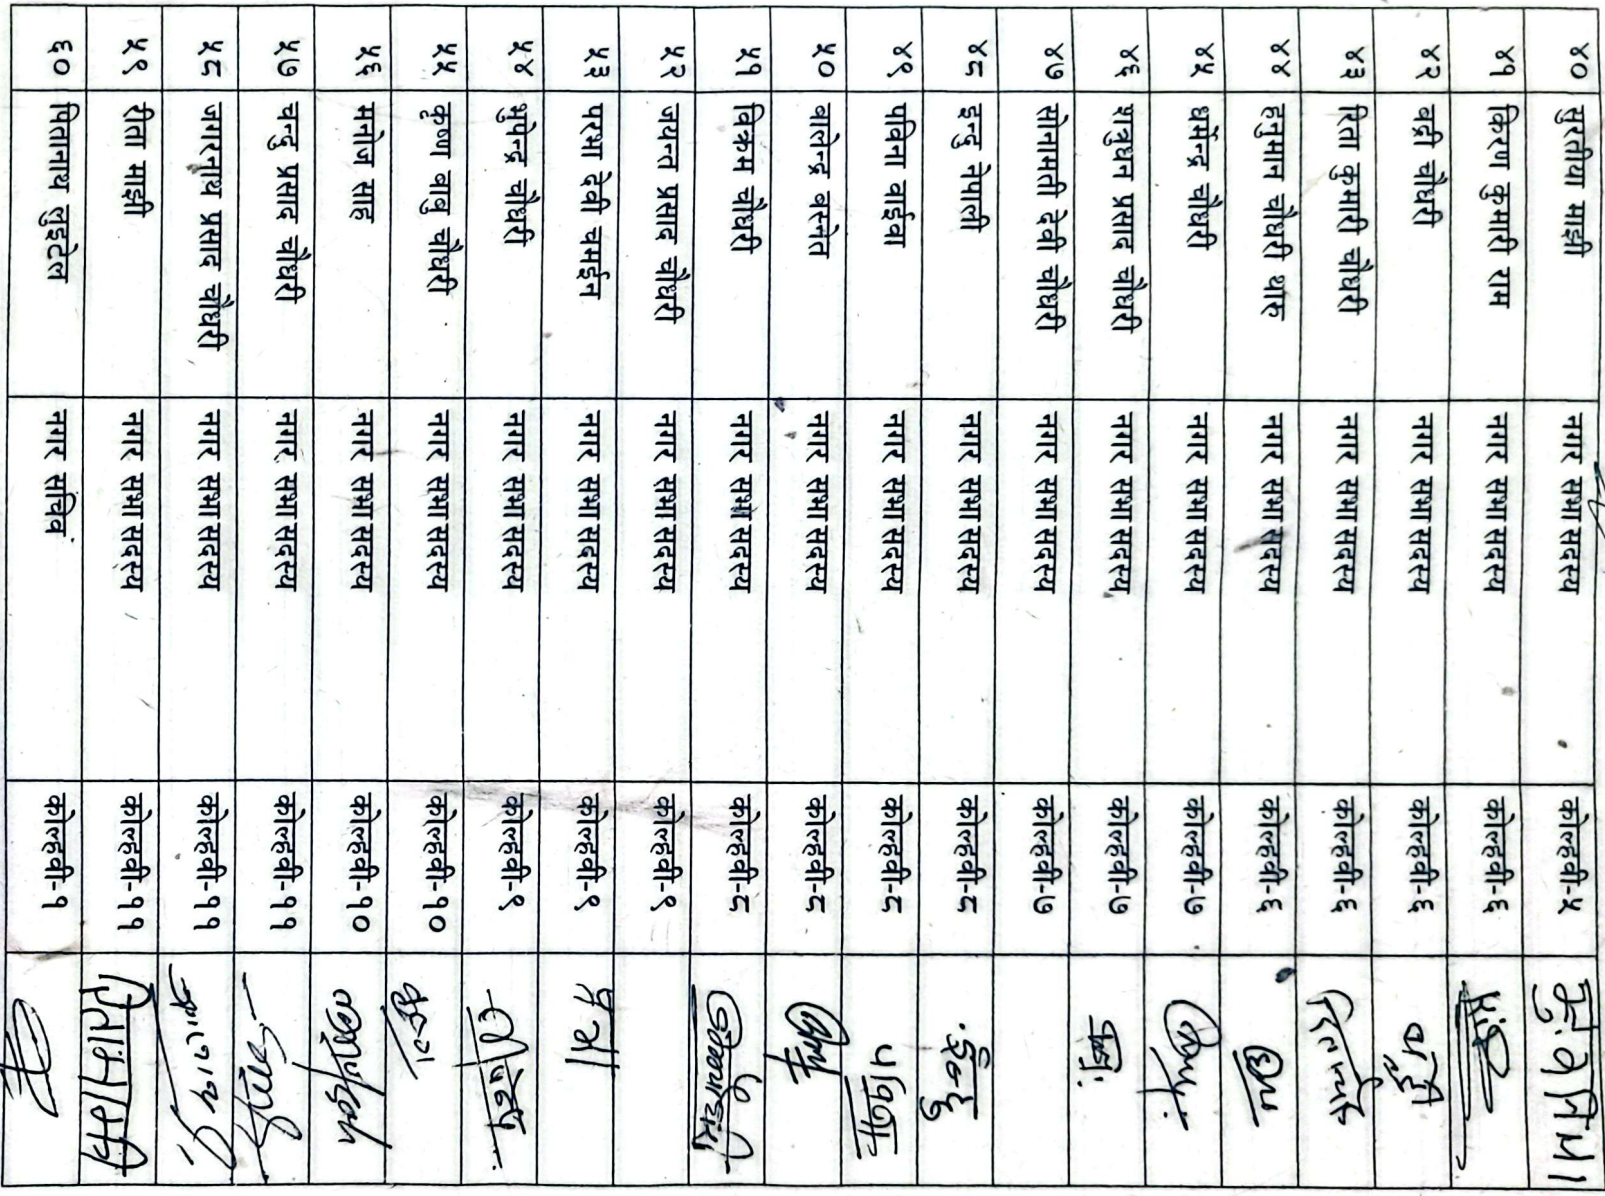 ४० सुरतीया माझी नगर सभा सदस्य कोल्हवी-५
४१ किरण कुमारी राम नगर सभा सदस्य कोल्हवी-६
४२ बद्री चौधरी नगर सभा सदस्य कोल्हवी-६ बद्री
४३ रिता कुमारी चौधरी नगर सभा सदस्य कोल्हवी-६
४४ हनुमान चौधरी थारु नगर सभा सदस्य कोल्हवी-६
४५ धर्मेन्द्र चौधरी नगर सभा सदस्य कोल्हवी-७
४६ शत्रुधन प्रसाद चौधरी नगर सभा सदस्य कोल्हवी-७
४७ सोनामती देवी चौधरी नगर सभा सदस्य कोल्हवी-७
४८ इन्दु नेपाली नगर सभा सदस्य कोल्हवी-८ इन्दु
४९ पविना वाईवा नगर सभा सदस्य कोल्हवी-८
५० वालेन्द्र वस्नेत नगर सभा सदस्य कोल्हवी-८
५१ विक्रम चौधरी नगर सभा सदस्य कोल्हवी-८
५२ जयन्त प्रसाद चौधरी नगर सभा सदस्य कोल्हवी-९
५३ परभा देवी चमईन नगर सभा सदस्य कोल्हवी-९
५४ भुपेन्द्र चौधरी नगर सभा सदस्य कोल्हवी-९
५५ कृष्ण वावु चौधरी नगर सभा सदस्य कोल्हवी-१०
५६ मनोज साह नगर सभा सदस्य कोल्हवी-१०
५७ चन्दु प्रसाद चौधरी नगर सभा सदस्य कोल्हवी-११
५८ जगरनाथ प्रसाद चौधरी नगर सभा सदस्य कोल्हवी-११
५९ रीता माझी नगर सभा सदस्य कोल्हवी-११
६० मितानाथ लुइटेल नगर सचिव कोल्हवी-१